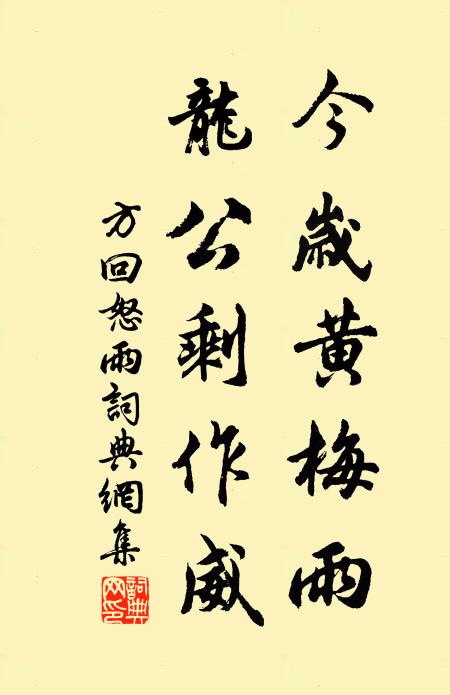 今歲黃梅雨
龍公剩作威
方回怒雨詞典網集
詞典網印